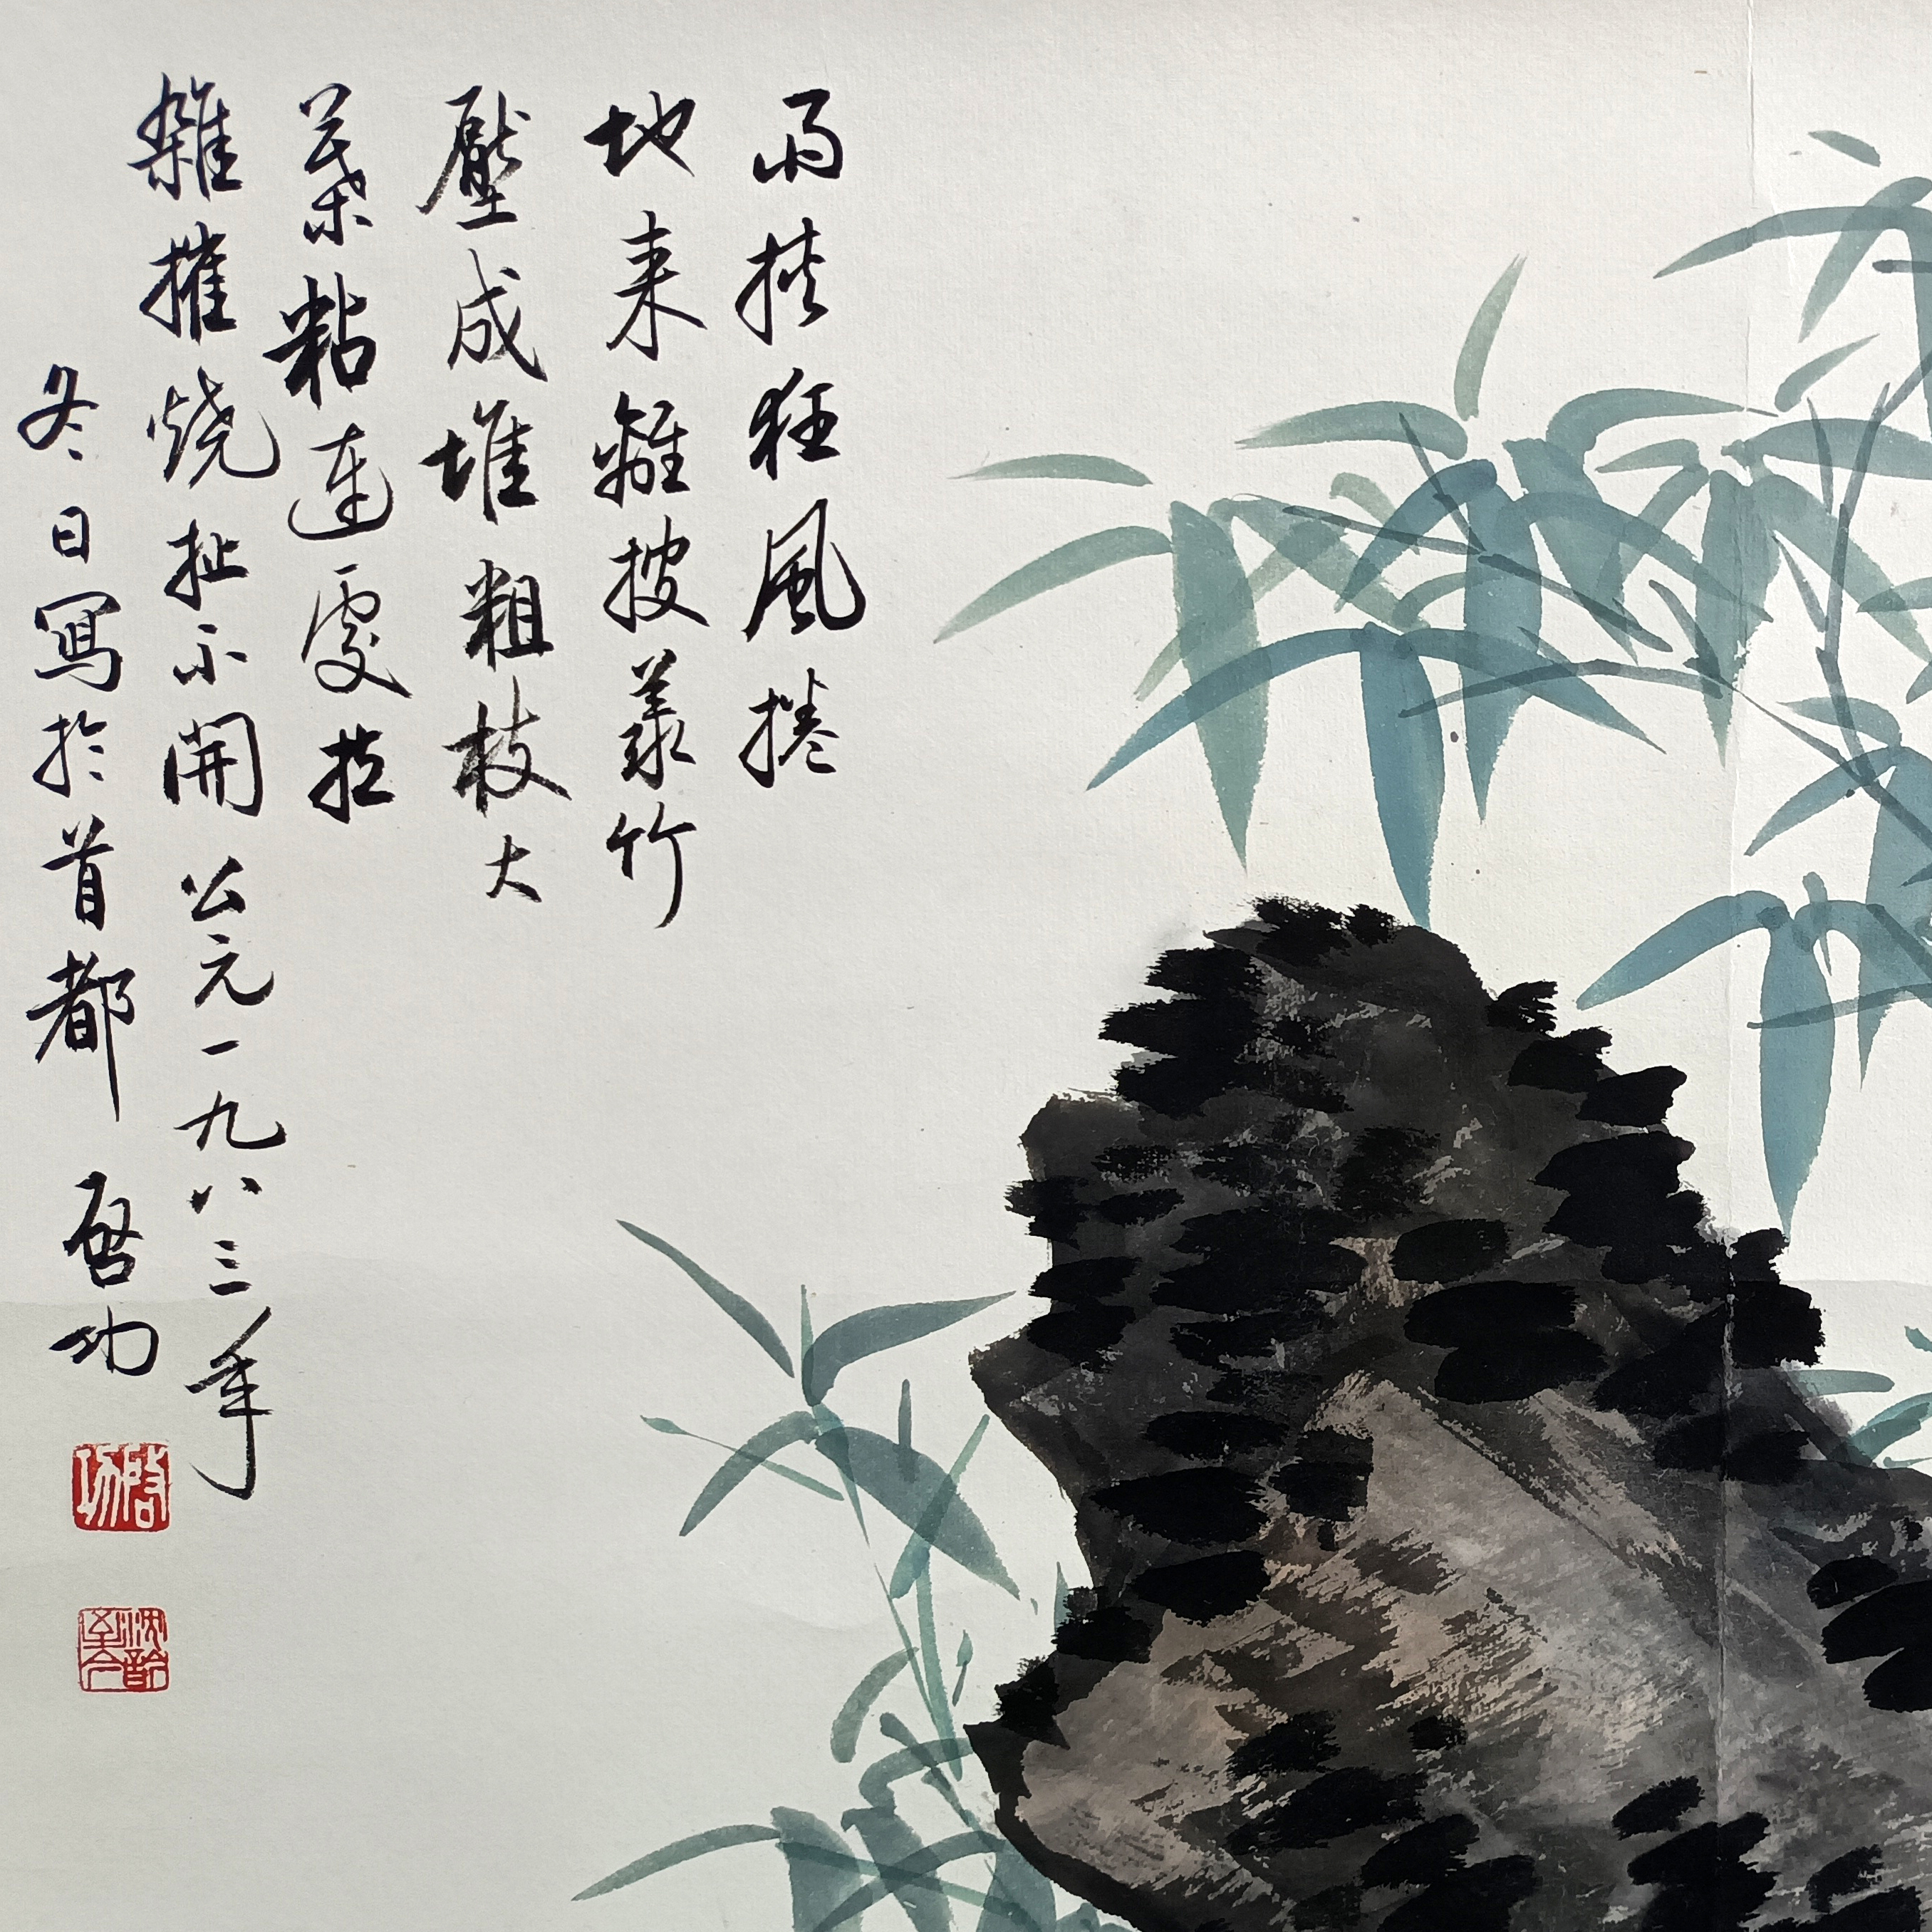 雨挾狂風捲
地来離披叢竹
壓成堆粗枝大
葉粘連處拉
雜摧燒扯不開 公元一九八三年
冬日寫於首都 启功
啓功